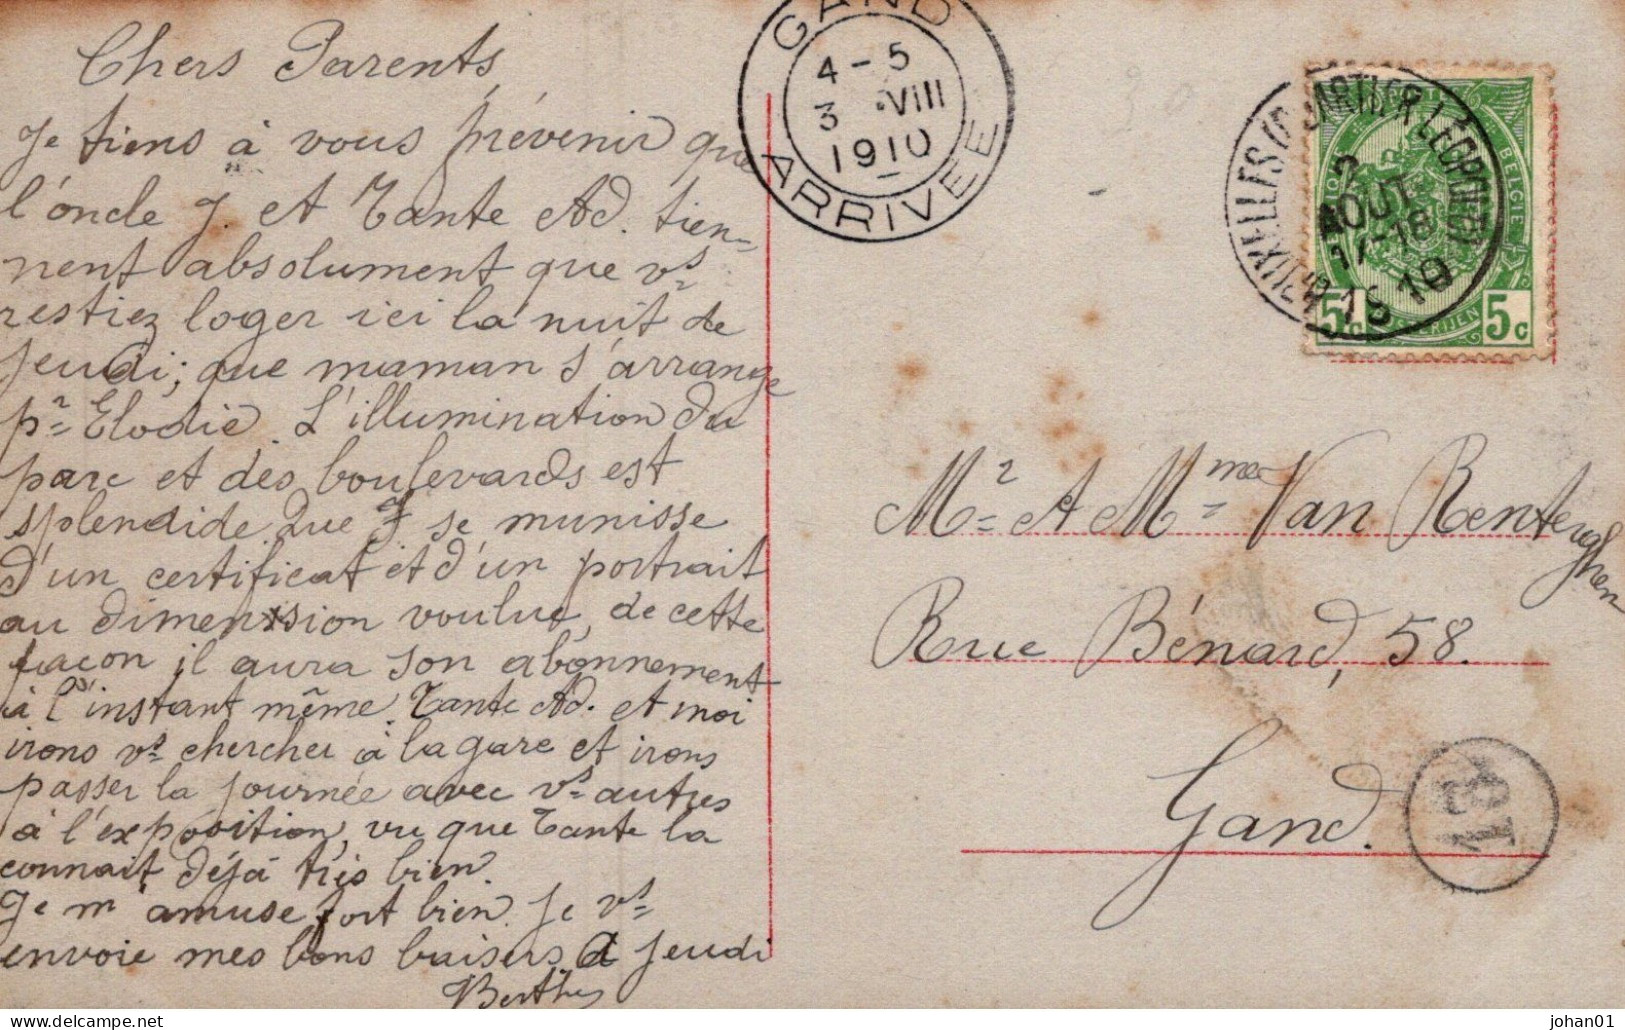 Chers Parents,
Je tiens à vous prévenir que
l'oncle J. et Tante Ad. tien=
nent absolument que vs
restiez loger ici la nuit de
jeudi; que maman s'arrange
pr Elodie. L'illumination du
parc et des boulevards est
splendide. Que J se munisse
d'un certificat et d'un portrait
au dimension voulue, de cette
façon il aura son abonnement
à l'instant même. Tante Ad. et moi
irons vs chercher à la gare et irons
passer la journée avec vs autres
à l'exposition, vu que Tante la
connait déjà très bien.
Je m'amuse fort bien. Je vs
envoie mes bons baisers à jeudi
Berthe
GAND
4-5
3 VIII
1910
ARRIVÉE
IXELLES (QUARTIER LÉOPOLD)
2
AOUT
17-18
1910
BELGIE
5c 5c
Mr et Mme Van Renterghen
Rue Bénard, 58.
Gand.
181
johan01